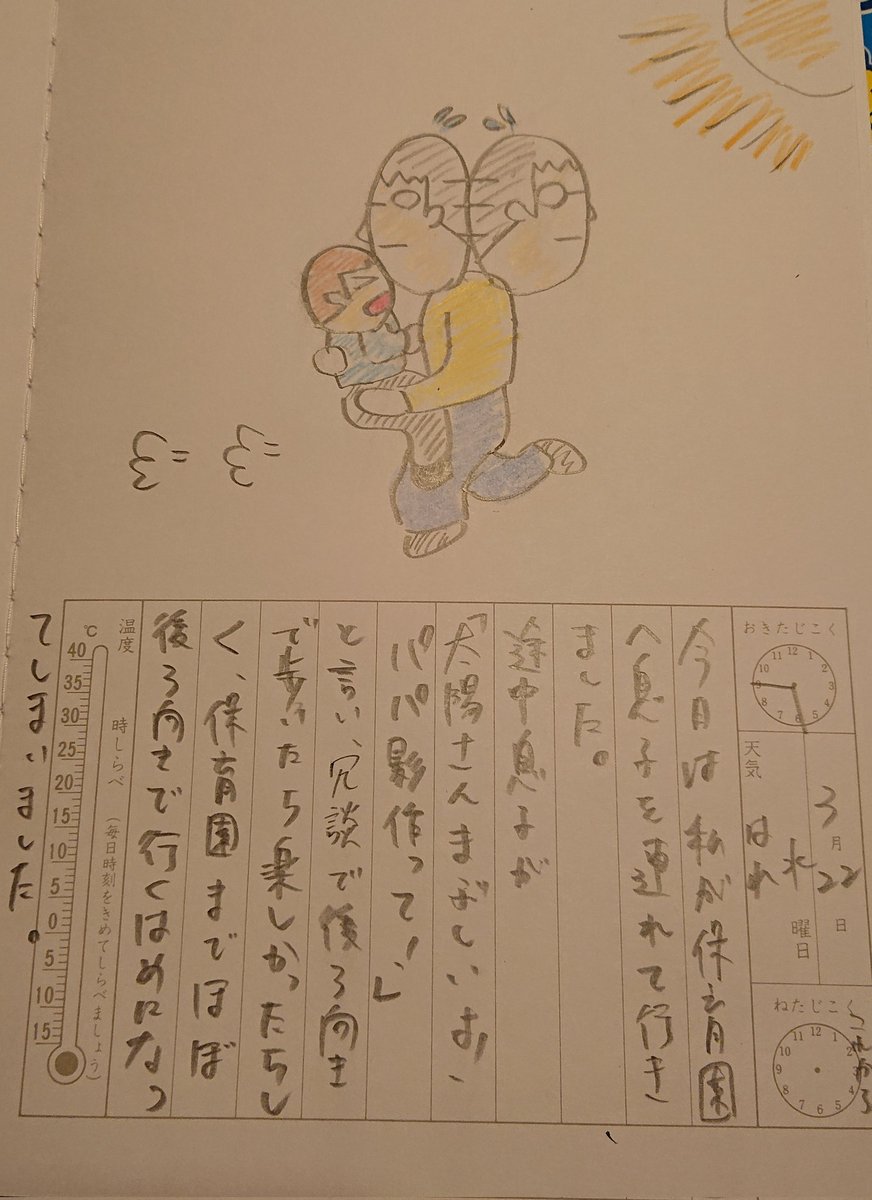 おきたじこく
12
11
1
10
2
9
3
8
4
7
5
6
3月22日
水曜日
天気
はれ
ねたじこく
これから
12
11
1
10
2
9
3
8
4
7
5
6
今日は私が保育園
へ息子を連れて行き
ました。
途中息子が
「太陽さんまぶしいよ!、
パパ影作って!」
と言い、冗談で後ろ向き
で歩いたら楽しかったらし
く、保育園までほぼ
後ろ向きで行くはめになっ
てしまいました。
温度
時しらべ
(毎日時刻をきめてしらべましょう)
℃
40
35
30
25
20
15
10
5
0
5
10
15